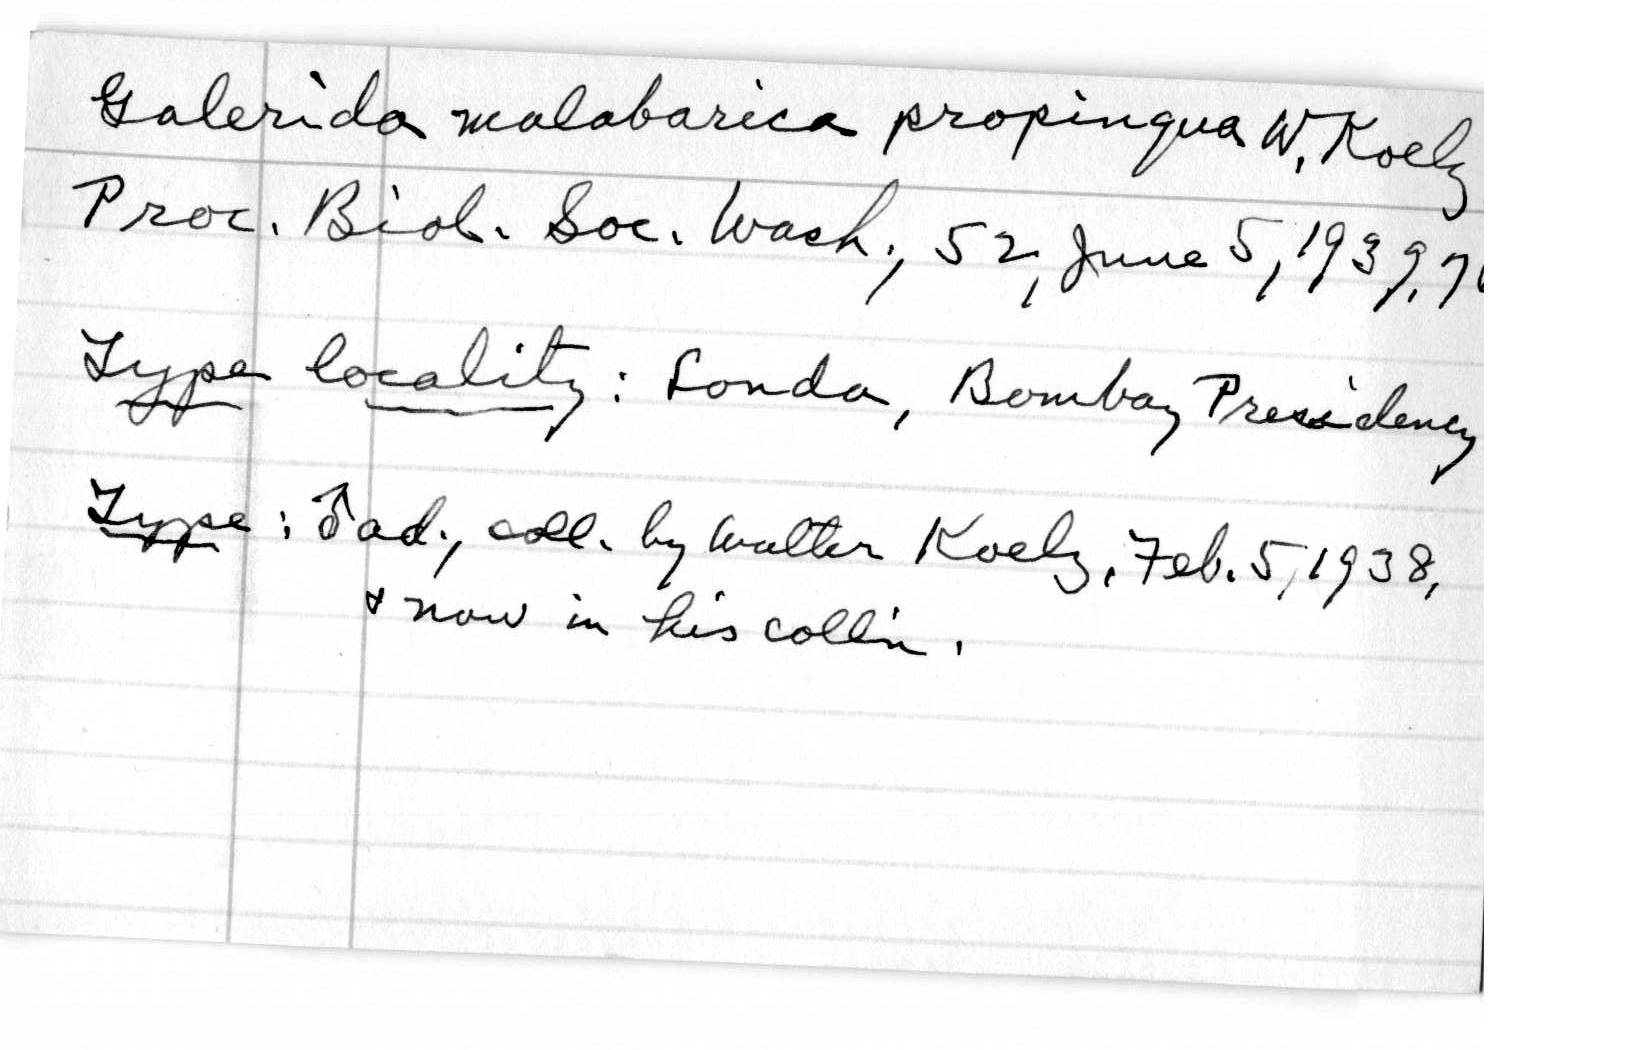 Galerida malabarica propinqua W. Koelz
Proc. Biol. Soc. Wash., 52, June 5, 1939,
Type locality: Londa, Bombay Presidency
Type: ♂ ad., coll. by Walter Koelz, Feb. 5, 1938,
& now in his coll'n.